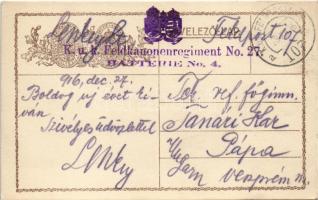 Lenkey
VELEZŐ
Feldpost 107
K. u. k. Feldkanonenregiment No. 27.
BATTERIE No. 4.
107
916, dec. 27.
Boldog uj évet ki-
ván
Szivélyes üdvözlettel
Lenkey
Tek. ref. főgimn.
Tanári Kar
Pápa
Ungarn Veszprém m.